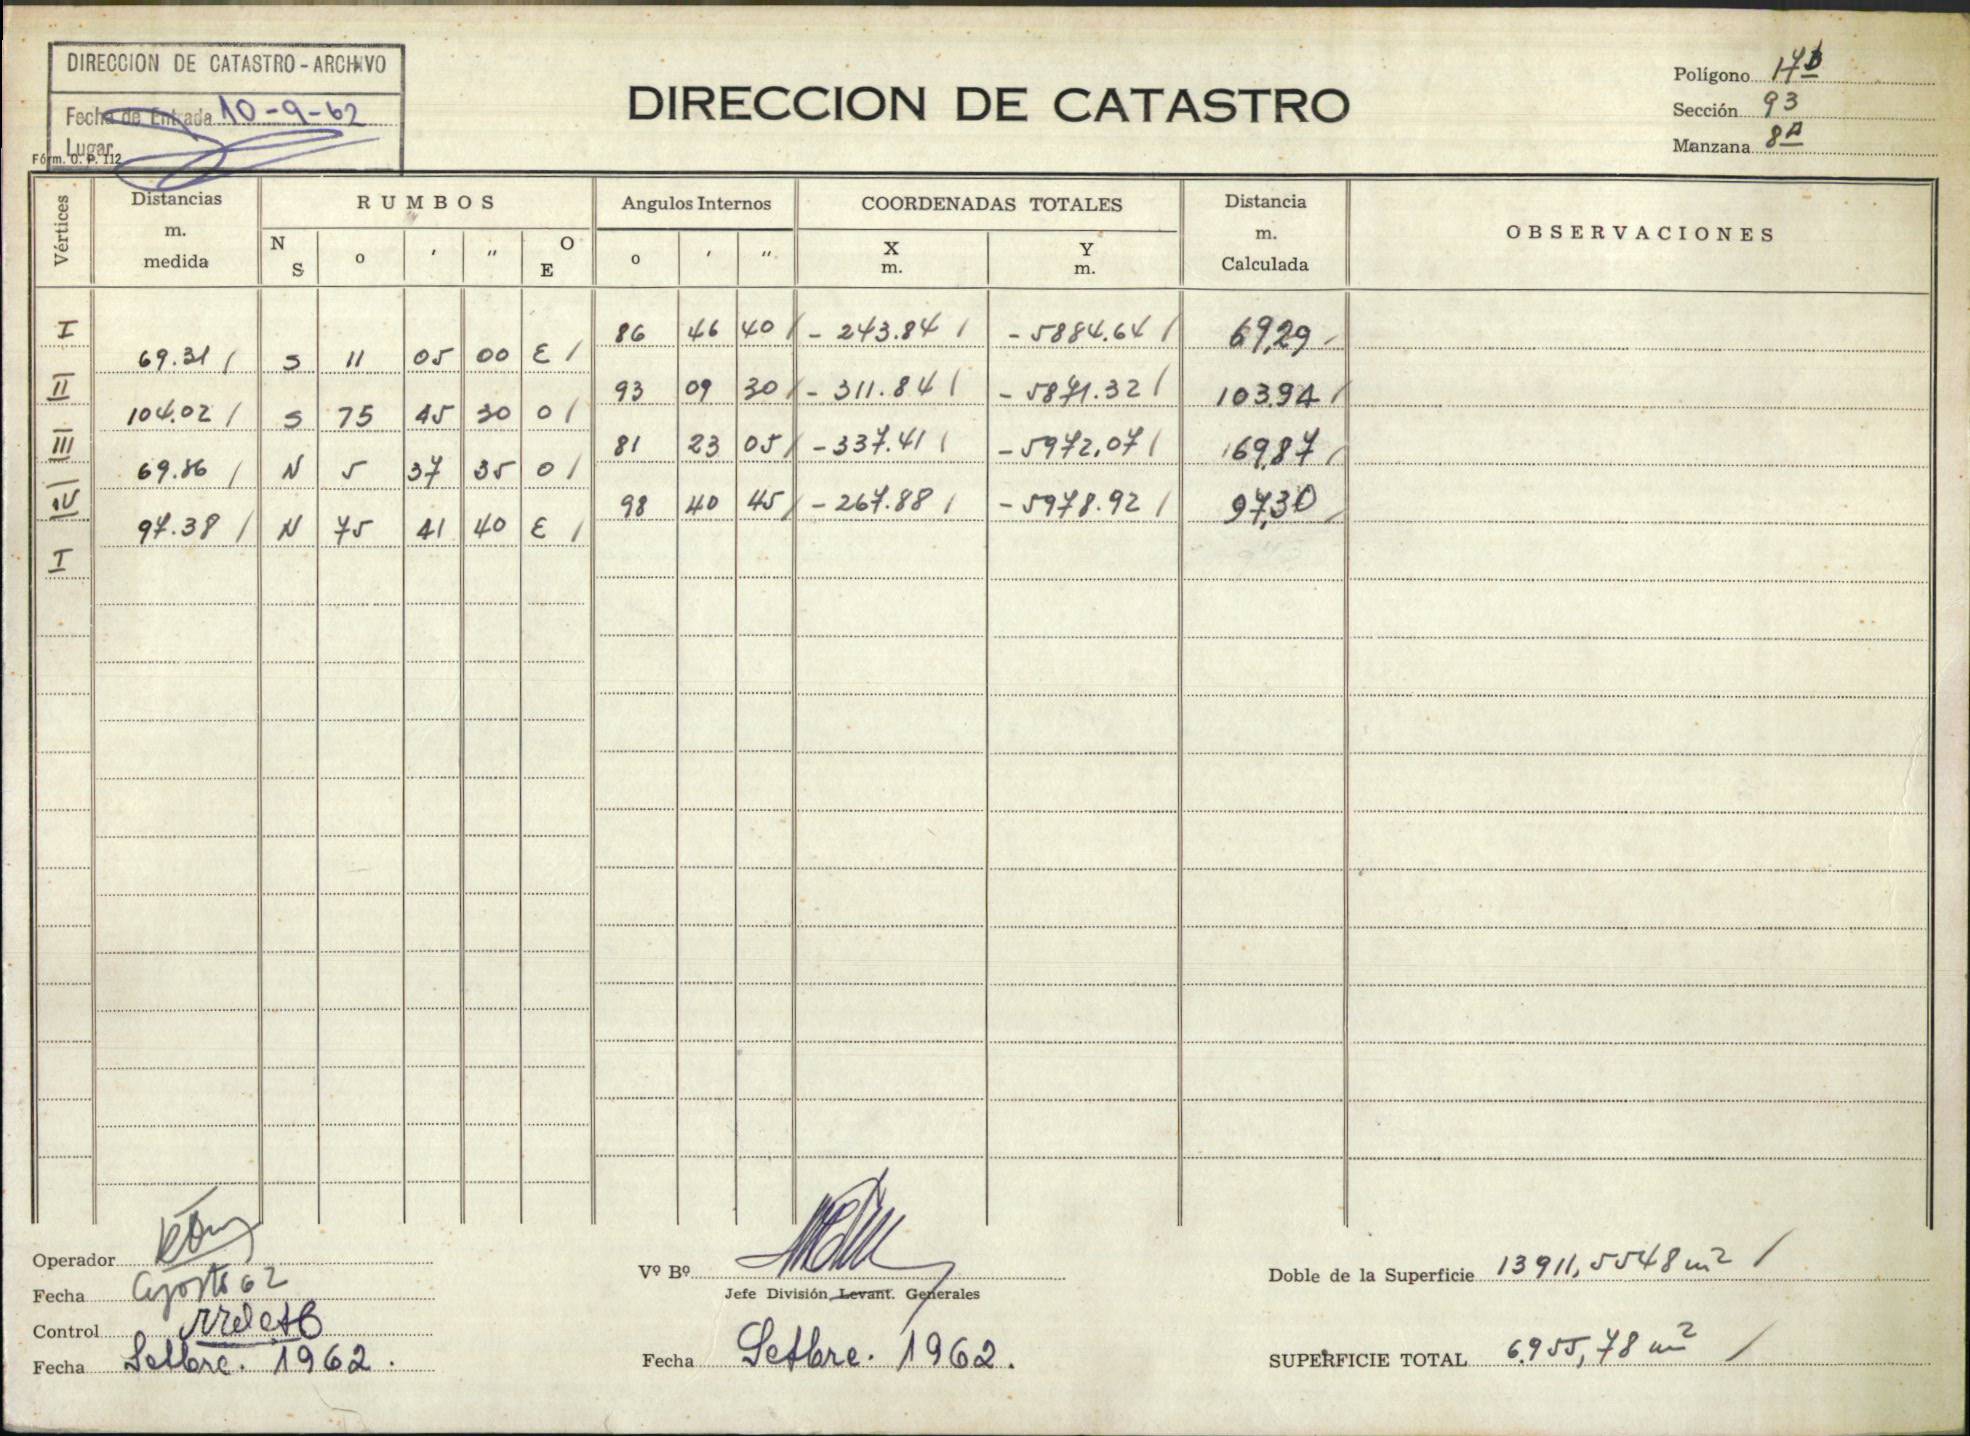 DIRECCION DE CATASTRO - ARCHIVO
Fecha de Entrada 10-9-62
Lugar
Fórm. O. P. 112
DIRECCION DE CATASTRO
Polígono 17B
Sección 93
Manzana 8A
Vértices Distancias m. medida RUMBOS Angulos Internos COORDENADAS TOTALES Distancia m. Calculada OBSERVACIONES
N S o ' " O E o ' " X m. Y m.
I 86 46 40 / - 243.84 / - 5884.64 / 69,29 /
69.31 / S 11 05 00 E /
II 93 09 30 / - 311.84 / - 5871.32 / 103.94 /
104.02 / S 75 45 30 O /
III 81 23 05 / - 337.41 / - 5972,07 / 69,87 /
69.86 / N 5 37 35 O /
IV 98 40 45 / - 267.88 / - 5978.92 / 97,30 /
97.38 / N 75 41 40 E /
I
Operador
Fecha Agosto 62
Control
Fecha Setbre. 1962.
Vº Bº
Jefe División Levant. Generales
Fecha Setbre. 1962.
Doble de la Superficie 13911,5548 m2 /
SUPERFICIE TOTAL 6.955,78 m2 /